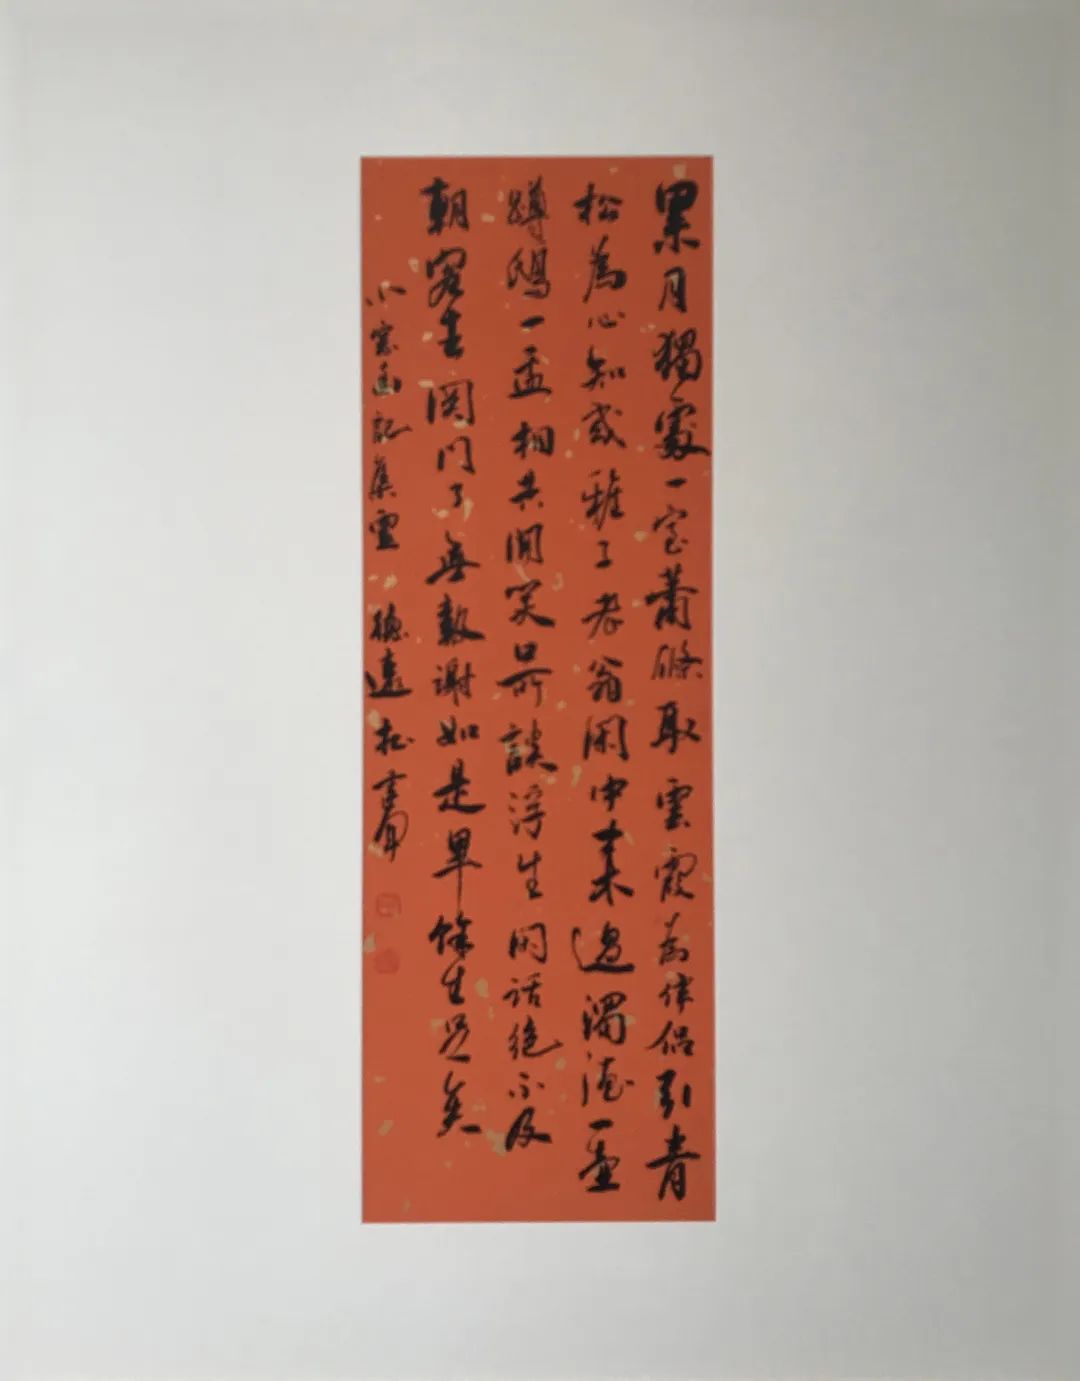 累月獨處一室蕭條取雲霞為伴侶引青
松為心知或稚子老翁閑中來過濁酒一壺
蹲鴟一盂相共開笑口所談浮生閑話絕不及
朝客去関門了無報謝如是畢餘生足矣
小窓幽記集靈 遠